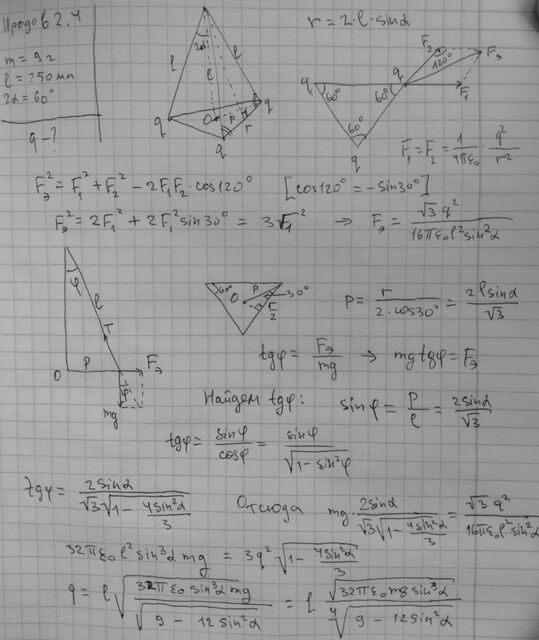 Продов 2.4
m = 9г
l = 250мм
2α = 60°
q - ?
r = 2·l·sinα
2α
l
l
l
q
O
P
r
q
q
q
60°
60°
q
60°
q
F₂
120°
Fэ
F₁
F₁ = F₂ = 1/(4πε₀) · q²/r²
Fэ² = F₁² + F₂² - 2F₁F₂·cos120° [cos120° = -sin30°]
Fэ² = 2F₁² + 2F₁²sin30° = 3F₁² → Fэ = √3 q²/(16πε₀l²sin²α)
φ
l
T
O
P
Fэ
φ
mg
60°
P
30°
O
r/2
P = r/(2·cos30°) = 2lsinα/√3
tgφ = Fэ/mg → mg tgφ = Fэ
Найдем tgφ: sinφ = P/l = 2sinα/√3
tgφ = sinφ/cosφ = sinφ/√(1-sin²φ)
tgφ = 2sinα/(√3√(1 - 4sin²α/3)) Отсюда mg · 2sinα/(√3√(1 - 4sin²α/3)) = √3 q²/(16πε₀l²sin²α)
32πε₀ l² sin³α mg = 3q² √(1 - 4sin²α/3)
q = l √(32πε₀ sin³α mg/√(9 - 12sin²α)) = l √(32πε₀mg sin³α)/⁴√(9 - 12sin²α)